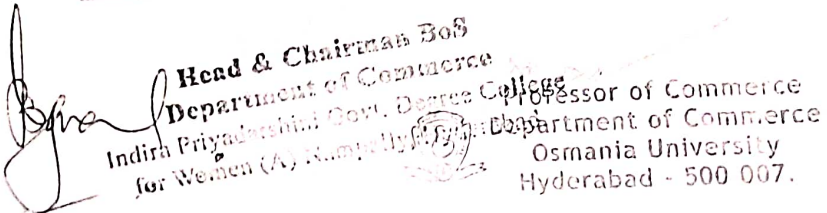 Head & Chairman BoS
Department of Commerce
Indira Priyadarshini Govt. Degree College
for Women (A) Nampally,
Professor of Commerce
Department of Commerce
Osmania University
Hyderabad - 500 007.